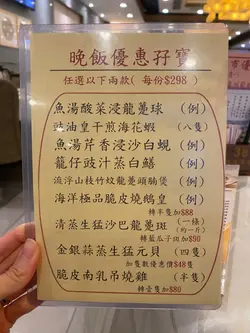 晚飯優惠孖寶
任選以下兩款(每份$298)
魚湯酸菜浸龍躉球(例)
豉油皇干煎海花蝦(八隻)
魚湯芹香浸沙白蜆(例)
籠仔豉汁蒸白鱔(例)
流浮山枝竹炆龍躉頭腩煲(例)
海洋極品脆皮燒鵝皇(例)
轉半隻加$88
清蒸生猛沙巴龍躉斑(一條)
(約一斤)
轉藍瓜子斑加$90
金銀蒜蒸生猛元貝(四隻)
加隻數優惠價$48隻
脆皮南乳吊燒雞(半隻)
轉壹隻加$80